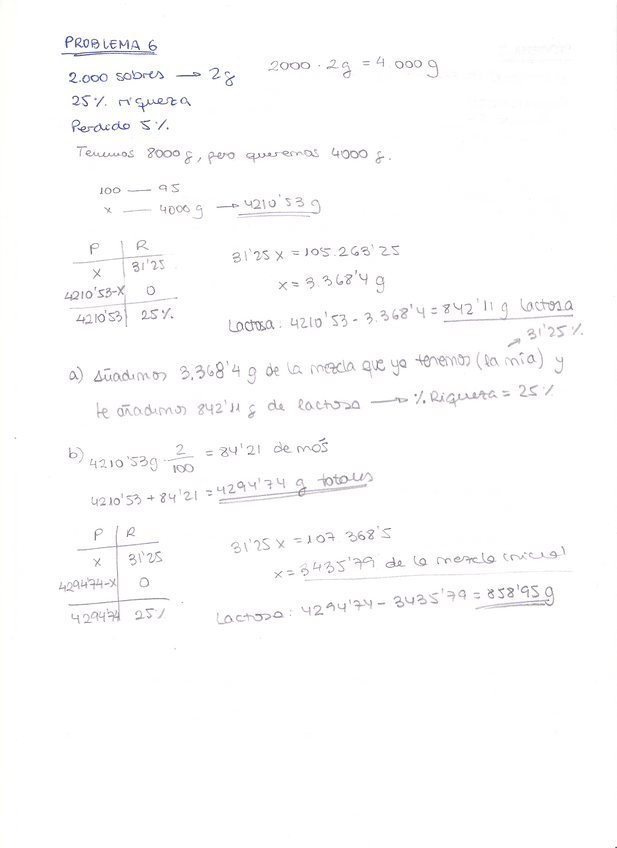 PROBLEMA 6
2.000 sobres → 2g
2000 · 2g = 4.000g
25% riqueza
Perdido 5%
Tenemos 8000g, pero queremos 4000 g.
100 — 95
x — 4000g → 4210'53 g
P R
x 31'25
4210'53-x 0
4210'53 25%
31'25x = 105.263'25
x = 3.368'4 g
Lactosa: 4210'53 - 3.368'4 = 842'11 g lactosa
31'25%
a) Añadimos 3.368'4 g de la mezcla que ya tenemos (la mía) y
le añadimos 842'11 g de lactosa → % Riqueza = 25%
b) 4210'53g · 2/100 = 84'21 de más
4210'53 + 84'21 = 4294'74 g totales
P R
x 31'25
4294'74-x 0
4294'74 25%
31'25x = 107 368'5
x = 3435'79 de la mezcla inicial
Lactosa: 4294'74 - 3435'79 = 858'95 g